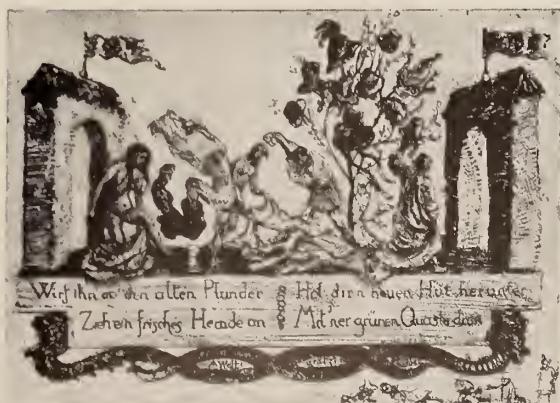 Wirf ihn ab den alten Plunder
Zieh ein frisches Hemde an
Hol dir'n neuen Hut herunter
Mit'ner grünen Quaste dran